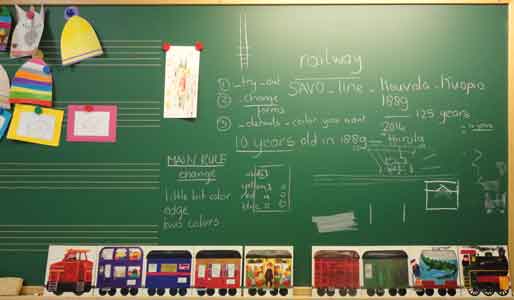 railway
① - try - out SAVO - line - Kouvola - Kuopio
② - change 1889
forms
125 years
③ - details - color you want 2014
10 years old in 1889
MAIN RULE
change
little bit color
edge
two colors
yellow
blue